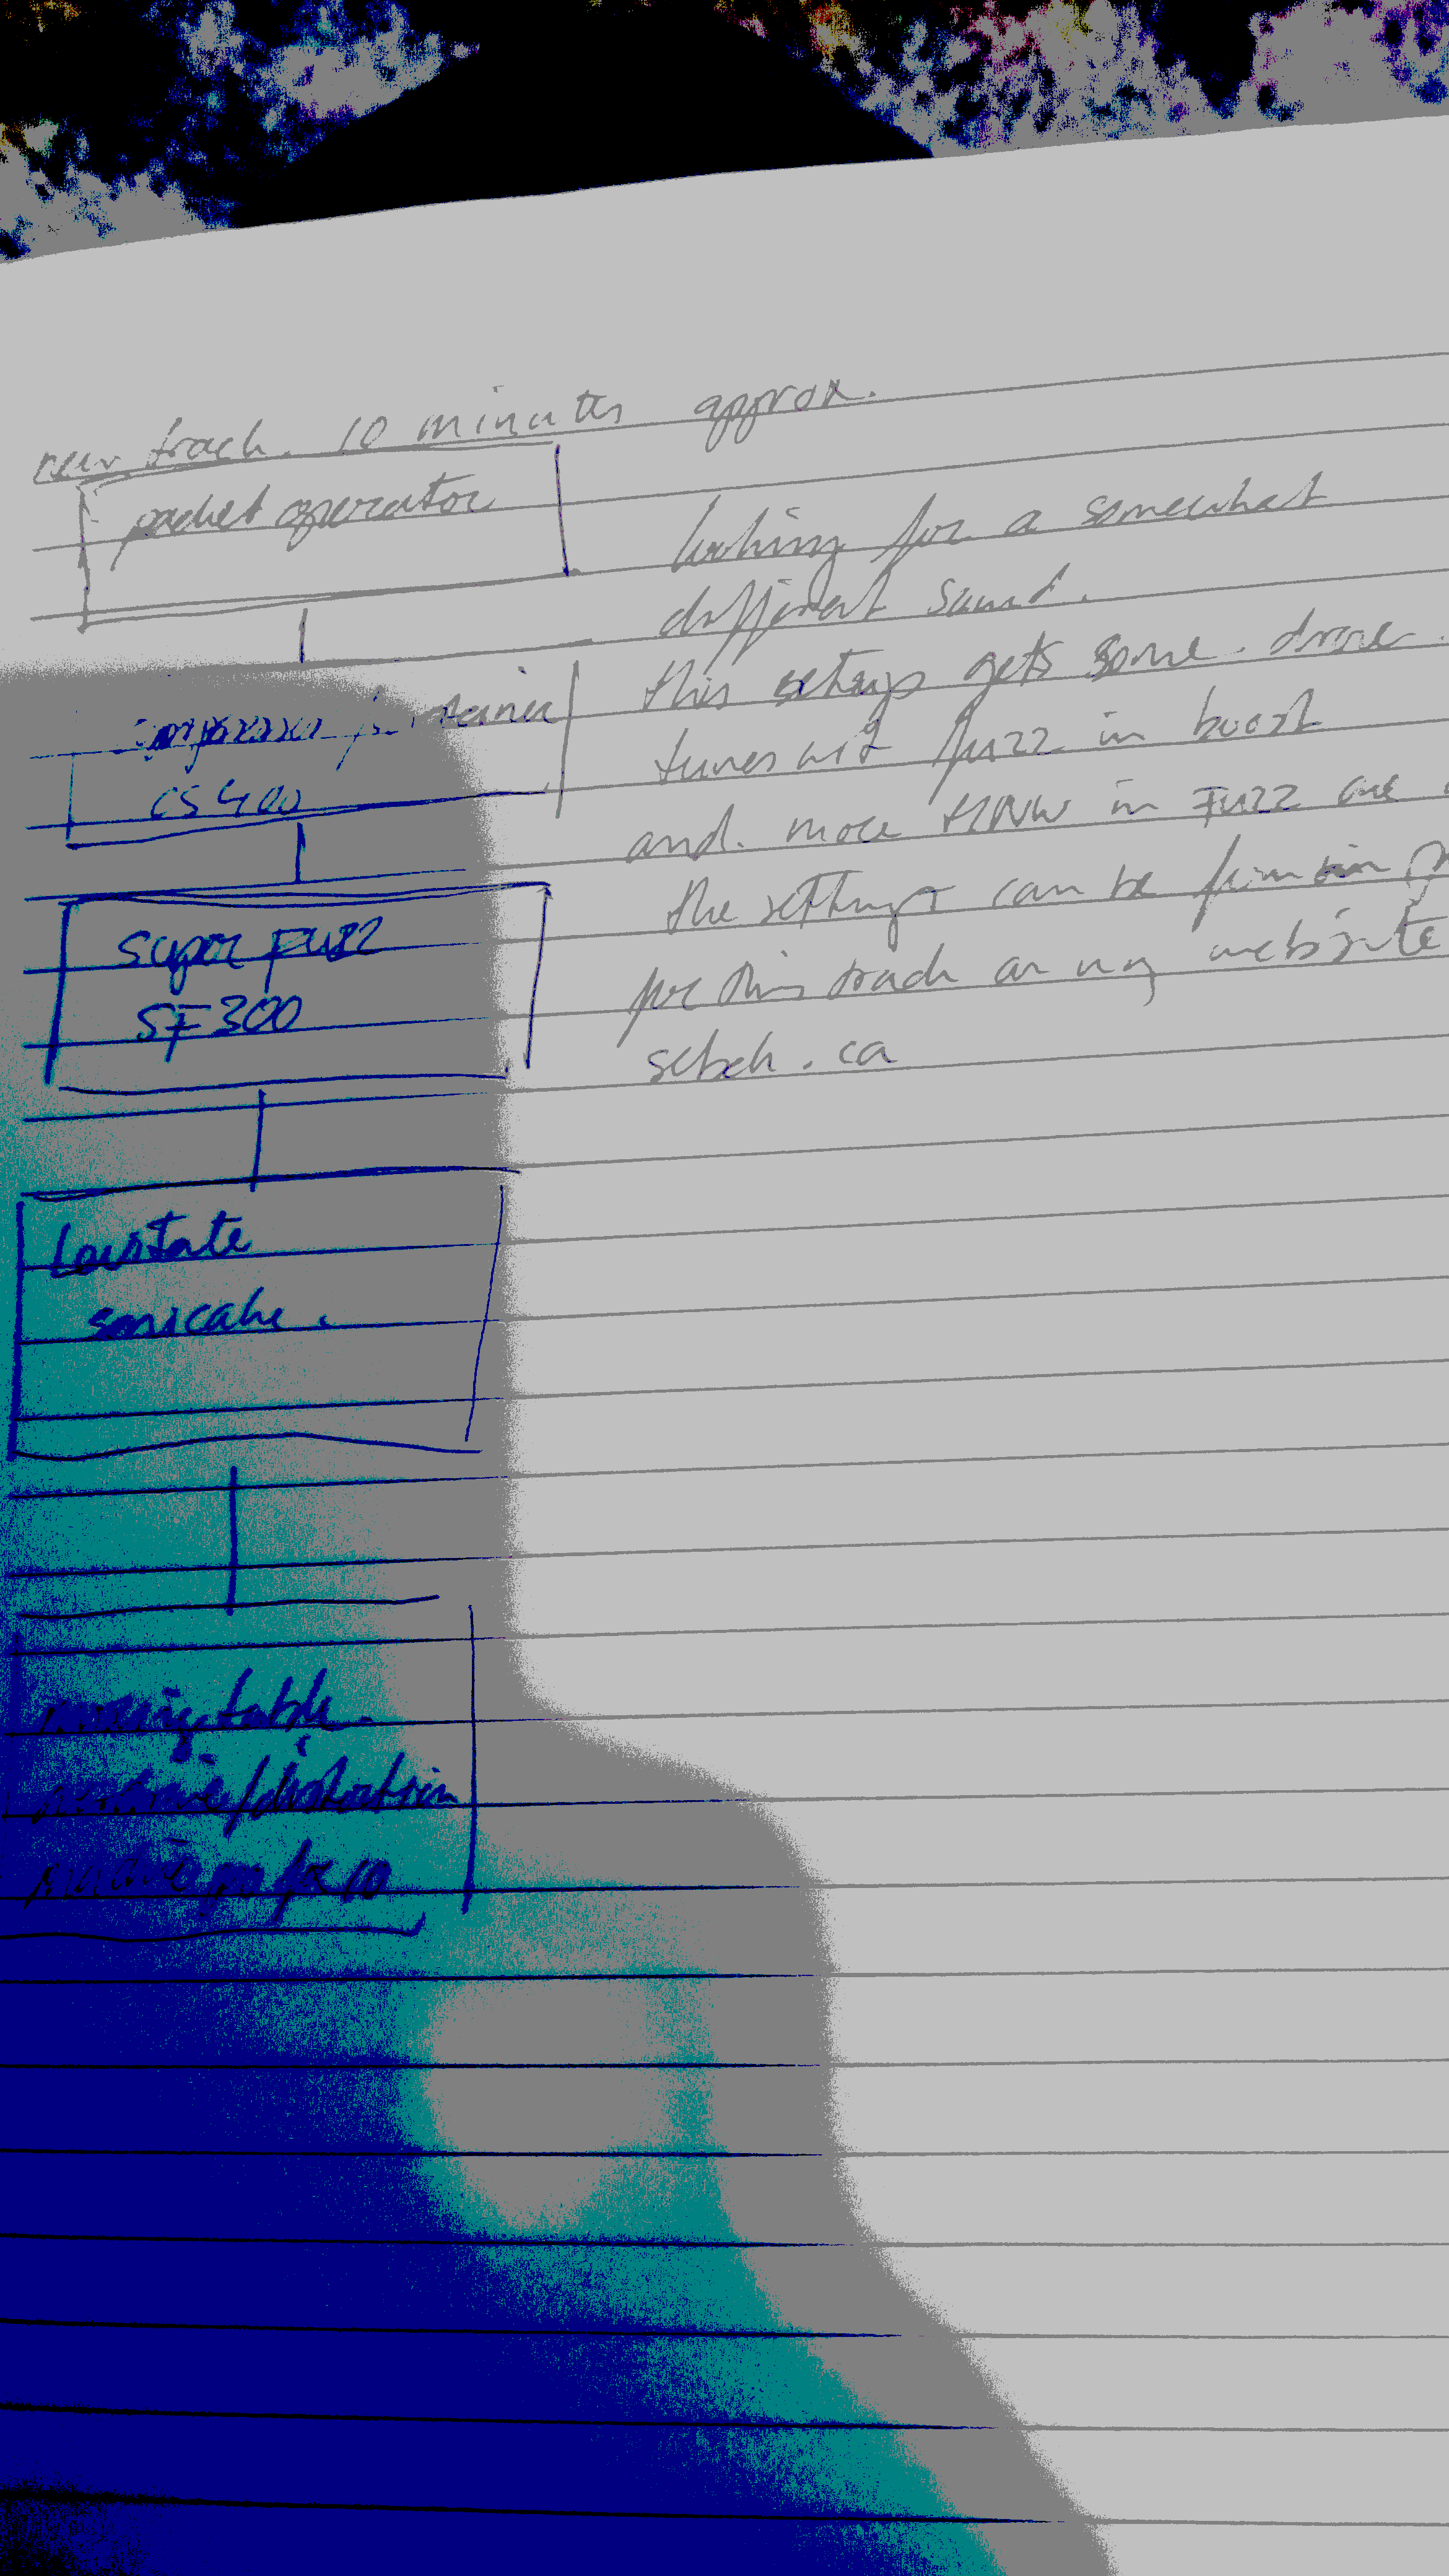 new track. 10 minutes approx.
pocket operator
compressor sustainer
CS400
super fuzz
SF300
Levitate
sonicake.
mixing table.
overdrive/distortion
looking for a somewhat
different sound.
this setup gets some drone
tunes with fuzz in boost
and. more HNW in Fuzz
the settings can be
for this track on my website
sebch.ca